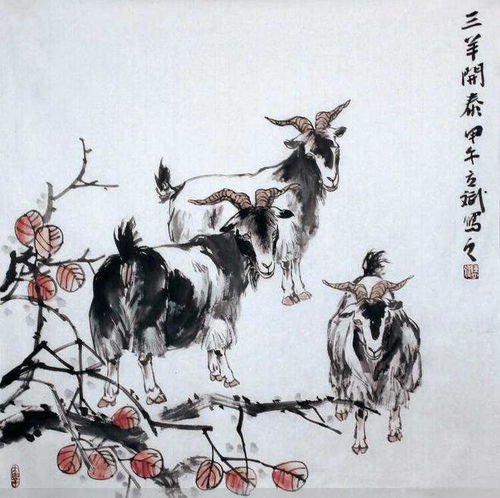 三羊開泰甲午立斌寫之